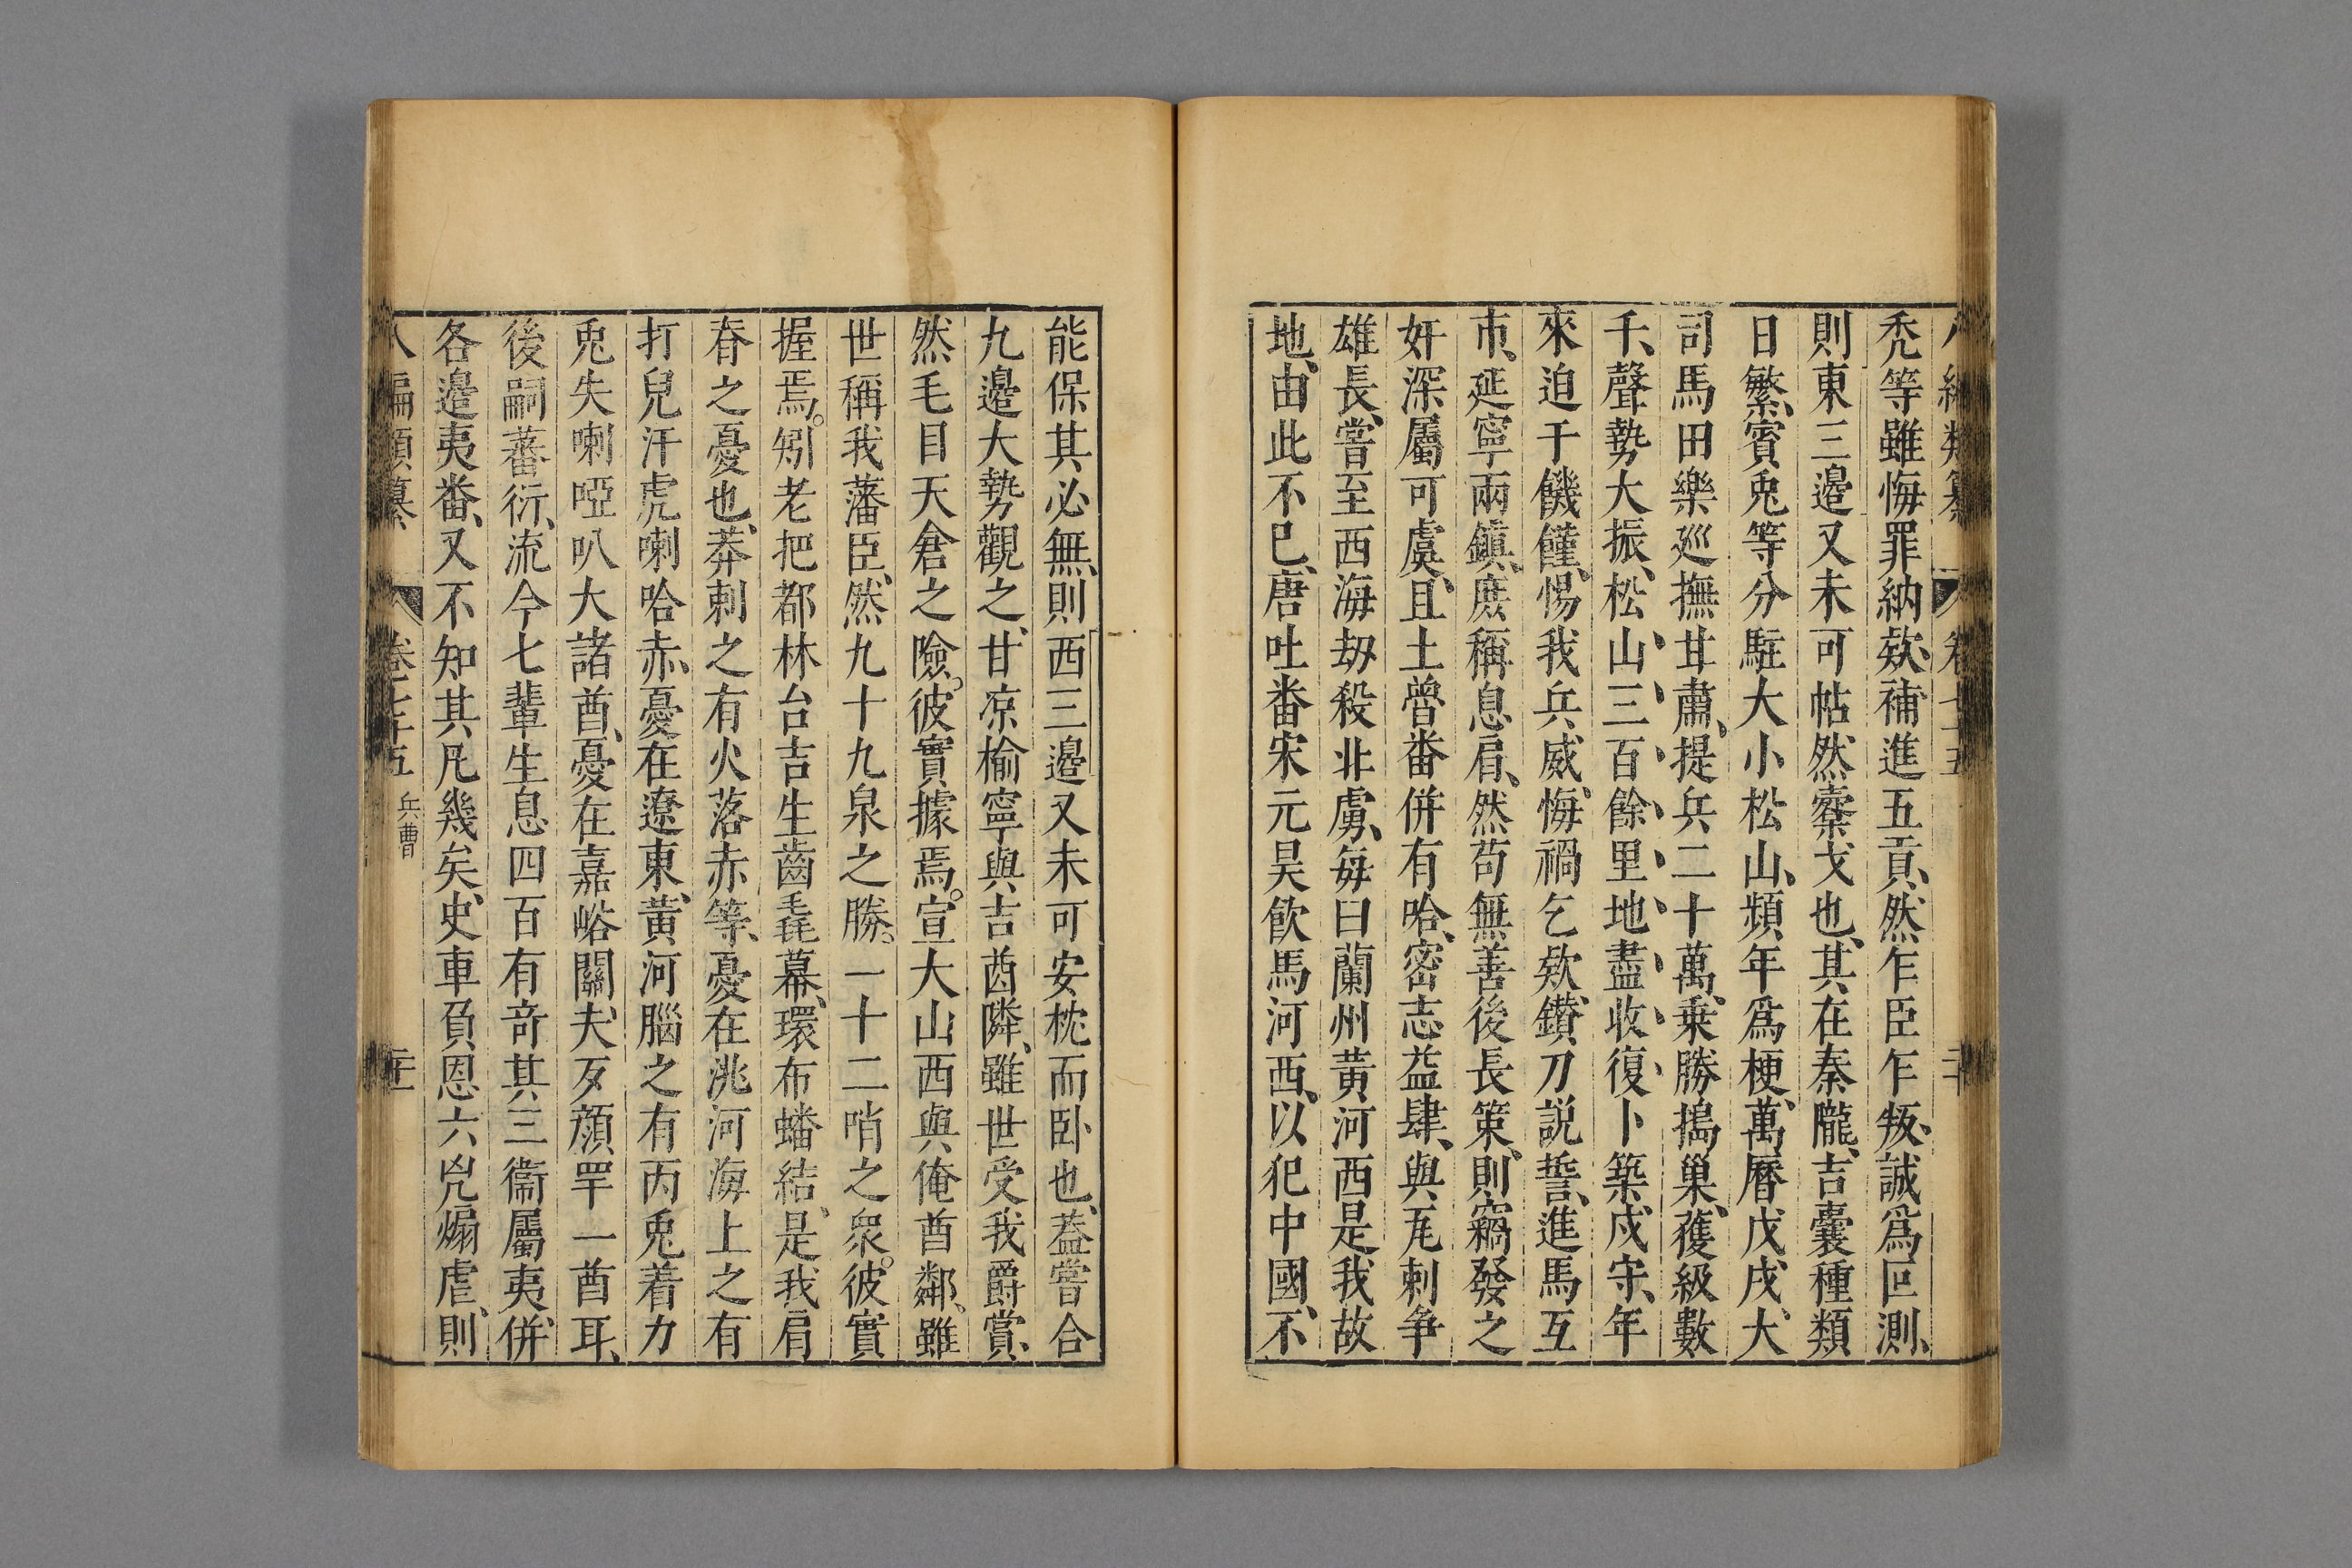 禿等雖悔罪納欵、補進五貢、然乍臣乍叛、誠爲叵測、
則東三邉又未可帖然櫜戈也、其在秦隴、吉囊種類
日繁、賓兎等分駐大小松山、頻年爲梗、萬曆戊戌、大
司馬田樂巡撫甘肅、提兵二十萬、乗勝搗巢、獲級數
千、聲勢大振、松山三百餘里地盡收復、卜築戍守、年
來迫于饑饉、惕我兵威、悔禍乞欵、鑚刀説誓、進馬互
市、延寧兩鎮、庶稱息肩、然苟無善後長策、則竊發之
奸深屬可虞、且土魯番併有哈密、志益肆、與瓦剌爭
雄長、嘗至西海刼殺非虜、每曰蘭州黃河西是我故
地、由此不已、唐吐番宋元昊飲馬河西、以犯中國、不
能保其必無、則西三邉又未可安枕而卧也、葢嘗合
九邉大勢觀之、甘凉榆寧與吉酋隣、雖世受我爵賞、
然毛目天倉之險、彼實據焉。宣大山西與俺酋鄰、雖
世稱我藩臣、然九十九泉之勝。一十二哨之衆。彼實
握焉。矧老把都林台吉生齒毳幕、環布蟠結、是我肩
春之憂也、莽剌之有火落赤等、憂在洮河海上之有
打兒汗虎喇哈赤、憂在遼東、黃河腦之有丙兎着力
兎失喇啞叭大諸酋、憂在嘉峪關、夫歹顔罕一酋耳、
後嗣蕃衍、流今七輩生息四百有竒其三衞屬夷、併
各邉夷番、又不知其凡幾矣、史車負恩六兇煽虐、則
八編類纂 卷七十五 兵曹 二十一